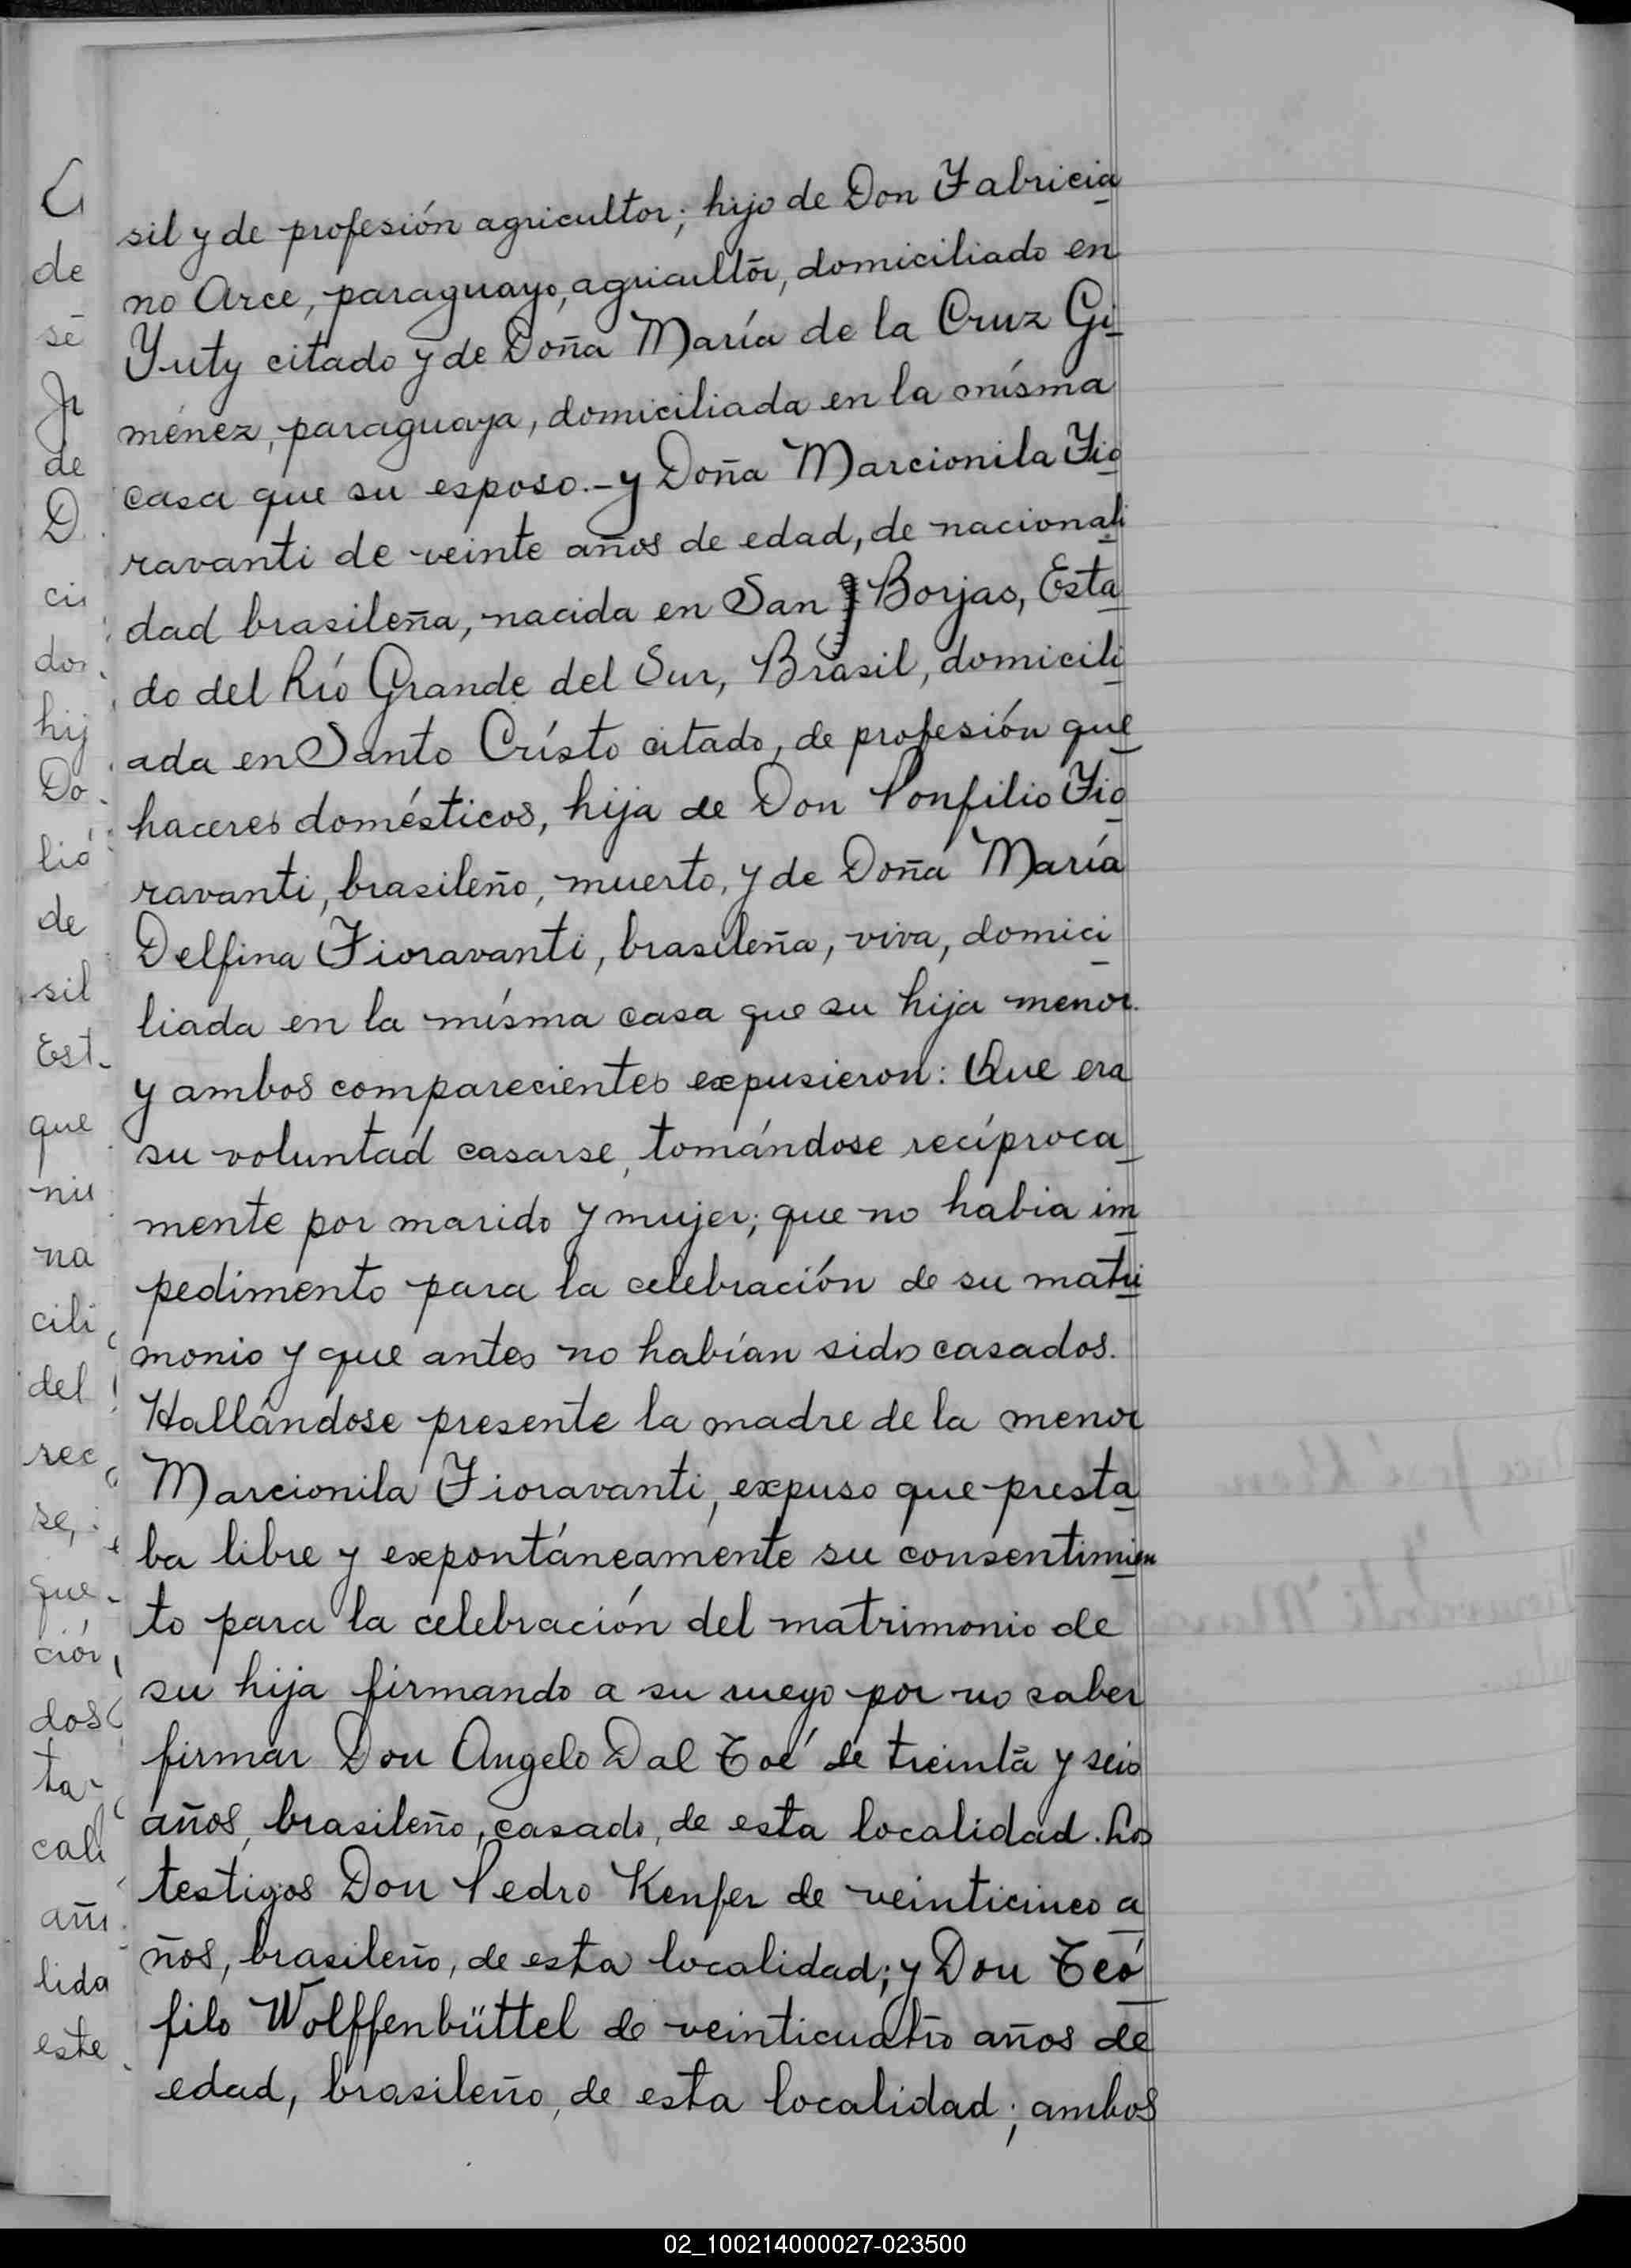 sil y de profesión agricultor; hijo de Don Fabricia
no Arce, paraguayo, agricultor, domiciliado en
Yuty citado y de Doña María de la Cruz Gi
ménez, paraguaya, domiciliada en la mísma
casa que su esposo.- y Doña Marcionila Fio
ravanti de veinte años de edad, de nacionali
dad brasileña, nacida en San Borjas, Esta
do del Río Grande del Sur, Brasil, domicili
ada en Santo Crísto citado, de profesión que
haceres domésticos, hija de Don Ponfilio Fio
ravanti, brasileño, muerto, y de Doña María
Delfina Fioravanti, brasileña, viva, domici
liada en la mísma casa que su hija menor.
y ambos comparecientes expusieron: Que era
su voluntad casarse, tomándose recíproca
mente por marido y mujer; que no habia im
pedimento para la celebración de su matri
monio y que antes no habían sido casados.
Hallándose presente la madre de la menor
Marcionila Fioravanti, expuso que presta
ba libre y expontáneamente su consentimien
to para la celebración del matrimonio de
su hija firmando a su ruego por no saber
firmar Don Angelo Dal Toé de treinta y seis
años, brasileño, casado, de esta localidad. Los
testigos Don Pedro Kenfer de veinticinco a
ños, brasileño, de esta localidad; y Don Teó
filo Wolffenbüttel de veinticuatro años de
edad, brasileño, de esta localidad; ambos
de
de
hij
Do
lió
de
sil
Est
que
na
cili
del
rec
se,
que
ción
dos
ta
cali
lida
este
02_100214000027-023500